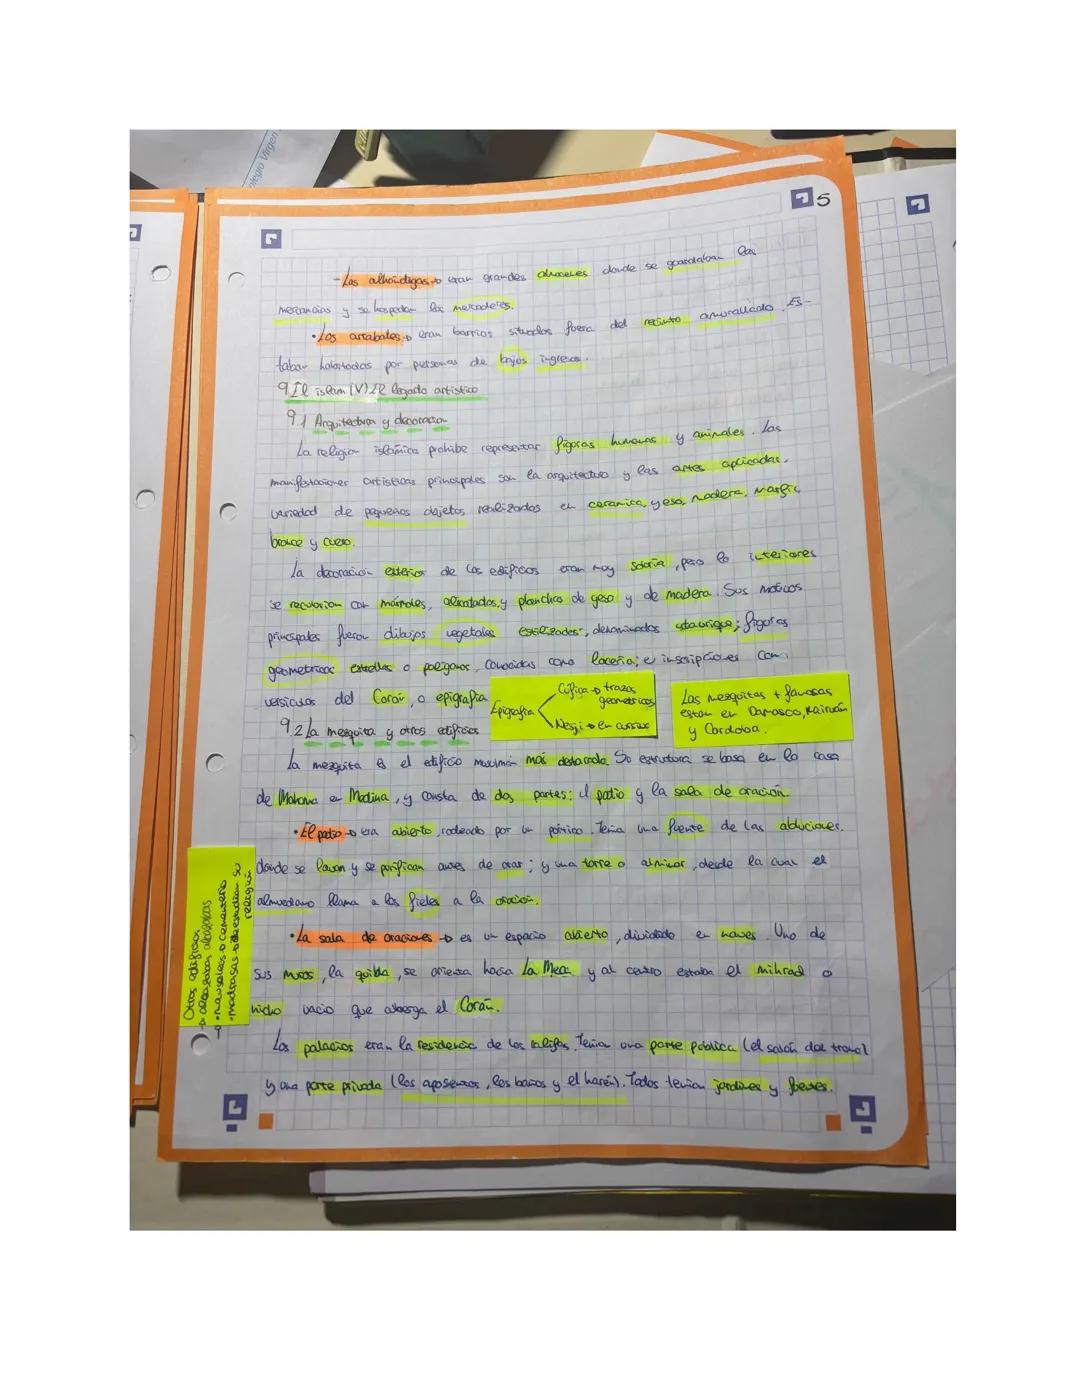 olegio Virgen
5
-Las alhóndigas→ eran grandes almacenes donde se guardaban las
mercancías y se hospedan los mercaderes.
•Los arrabales→ eran barrios situados fuera del recinto amurallado. Es-
taban habitados por personas de bajos ingresos.
9.El islam (V) El legado artístico
9.1 Arquitectura y decoración
La religión islámica prohibe representar figuras humanas y animales. Las
manifestaciones artísticas principales son la arquitectura y las artes aplicadas,
variedad de pequeños objetos realizados en ceramica, yeso, madera, marfil,
bronce y cuero.
La decoración exterior de los edificios eran muy sobria, pero lo interiores
se recubrían con mármoles, alicatados, y planchas de yeso y de madera. Sus motivos
principales fueron dibujos vegetales estilizados, denominados ataurique; figuras
geometricas estrellas o polígonos, conocidas como lacería; e inscripciones con
versículos del Corán, o epigrafía
Epigrafía
Cúfica→ trazos
geometricos
Nesji→ en cursiva
Las mezquitas + famosas
estan en Damasco, Kairuán
y Cordoba.
9.2 La mezquita y otros edificios
La mezquita es el edificio musulmán más destacado. Su estrutura se basa en la casa
de Mahoma en Medina, y consta de dos partes: el patio y la sala de oración.
•El patio→ era abierto, rodeado por un pórtico. Tenia una fuente de las abluciones,
donde se lavan y se purifican antes de orar; y una torre o alminar, desde la cual el
almuedano llama a los fieles a la oración.
•La sala de oraciones→ es un espacio abierto, dividido en naves. Uno de
sus muros, la quibla, se orienta hacia La Meca y al centro estaba el mihrad o
nicho vacio que alberga el Corán.
Otros edificios
→ alcazabas,
→ •mausoleos→ cementerio
-madrasas→ de estudian su
religión
Los palacios eran la residencia de los califas. Tenian una parte pública (el salón del trono)
y una parte privada (los aposentos, los baños y el harén). Todos tenian jardines y fuentes.